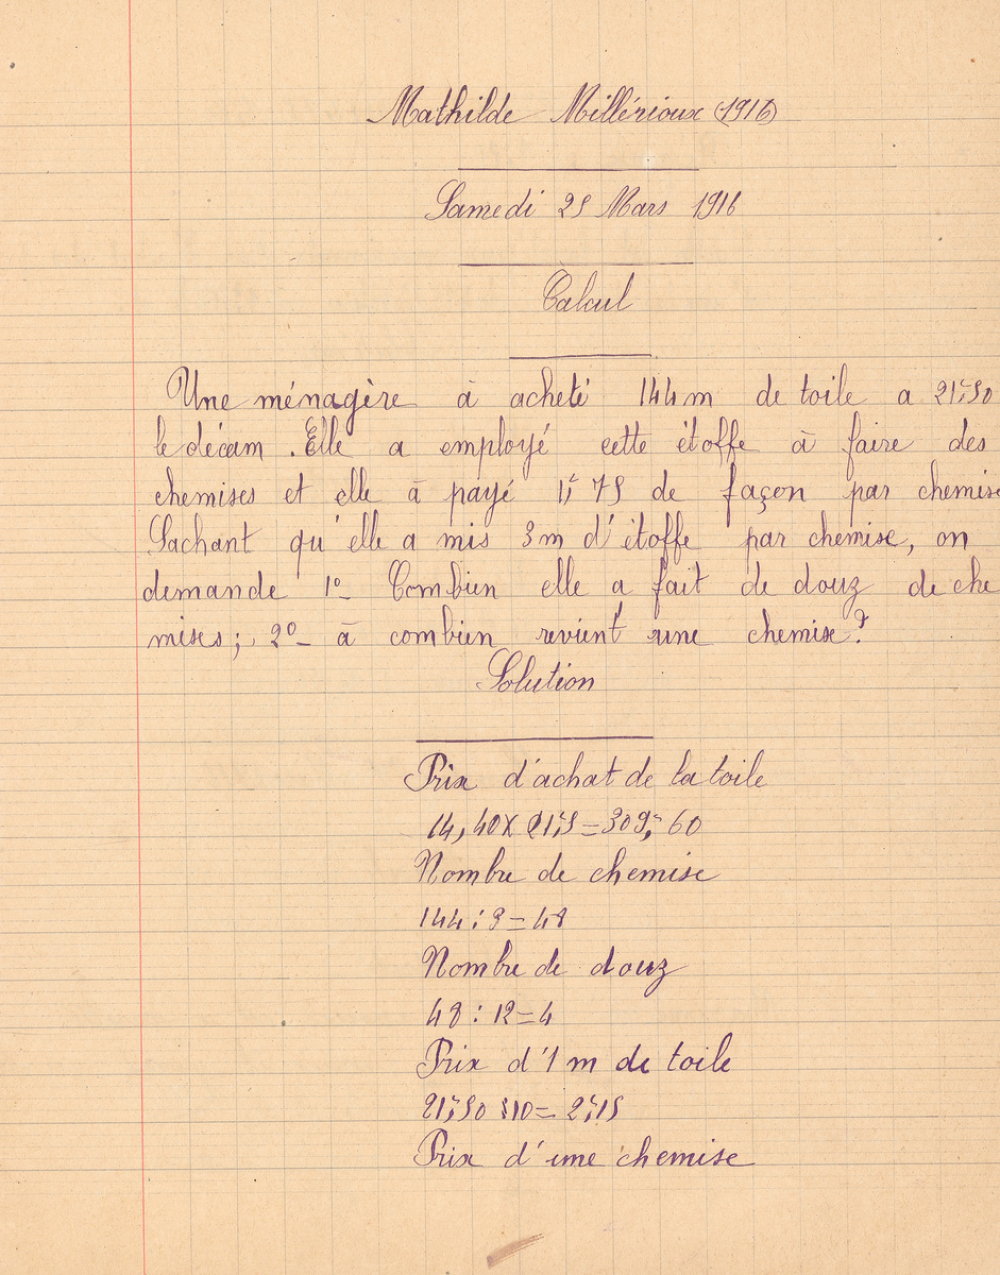 Mathilde Millérioux (1916)
Samedi 25 Mars 1916
Calcul
Une ménagère à acheté 144m de toile a 21f,50
le décam. Elle a employé cette étoffe à faire des
chemises et elle à payé 1f,75 de façon par chemise
Sachant qu'elle a mis 3m d'étoffe par chemise, on
demande 1º_ Combien elle a fait de douz de che
mises; 2º_ à combien revient une chemise?
Solution
Prix d'achat de la toile
14,40 x 21f,5 = 309f,60
Nombre de chemise
144 : 3 = 48
Nombre de douz
48 : 12 = 4
Prix d'1 m de toile
21f,50 : 10 = 2f,15
Prix d'une chemise